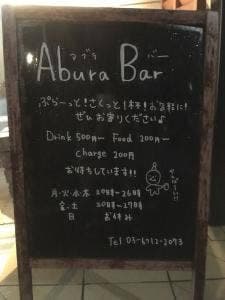 アブラ バー
Abura Bar
ぷら〜っと!さくっと1杯!お気軽に!
ぜひお寄りください♪
Drink 500円〜 Food 200円〜
charge 200円
お待ちしています!!
月・火・水・木 20時〜26時
金・土 20時〜27時
日 お休み
Tel 03-6712-2093